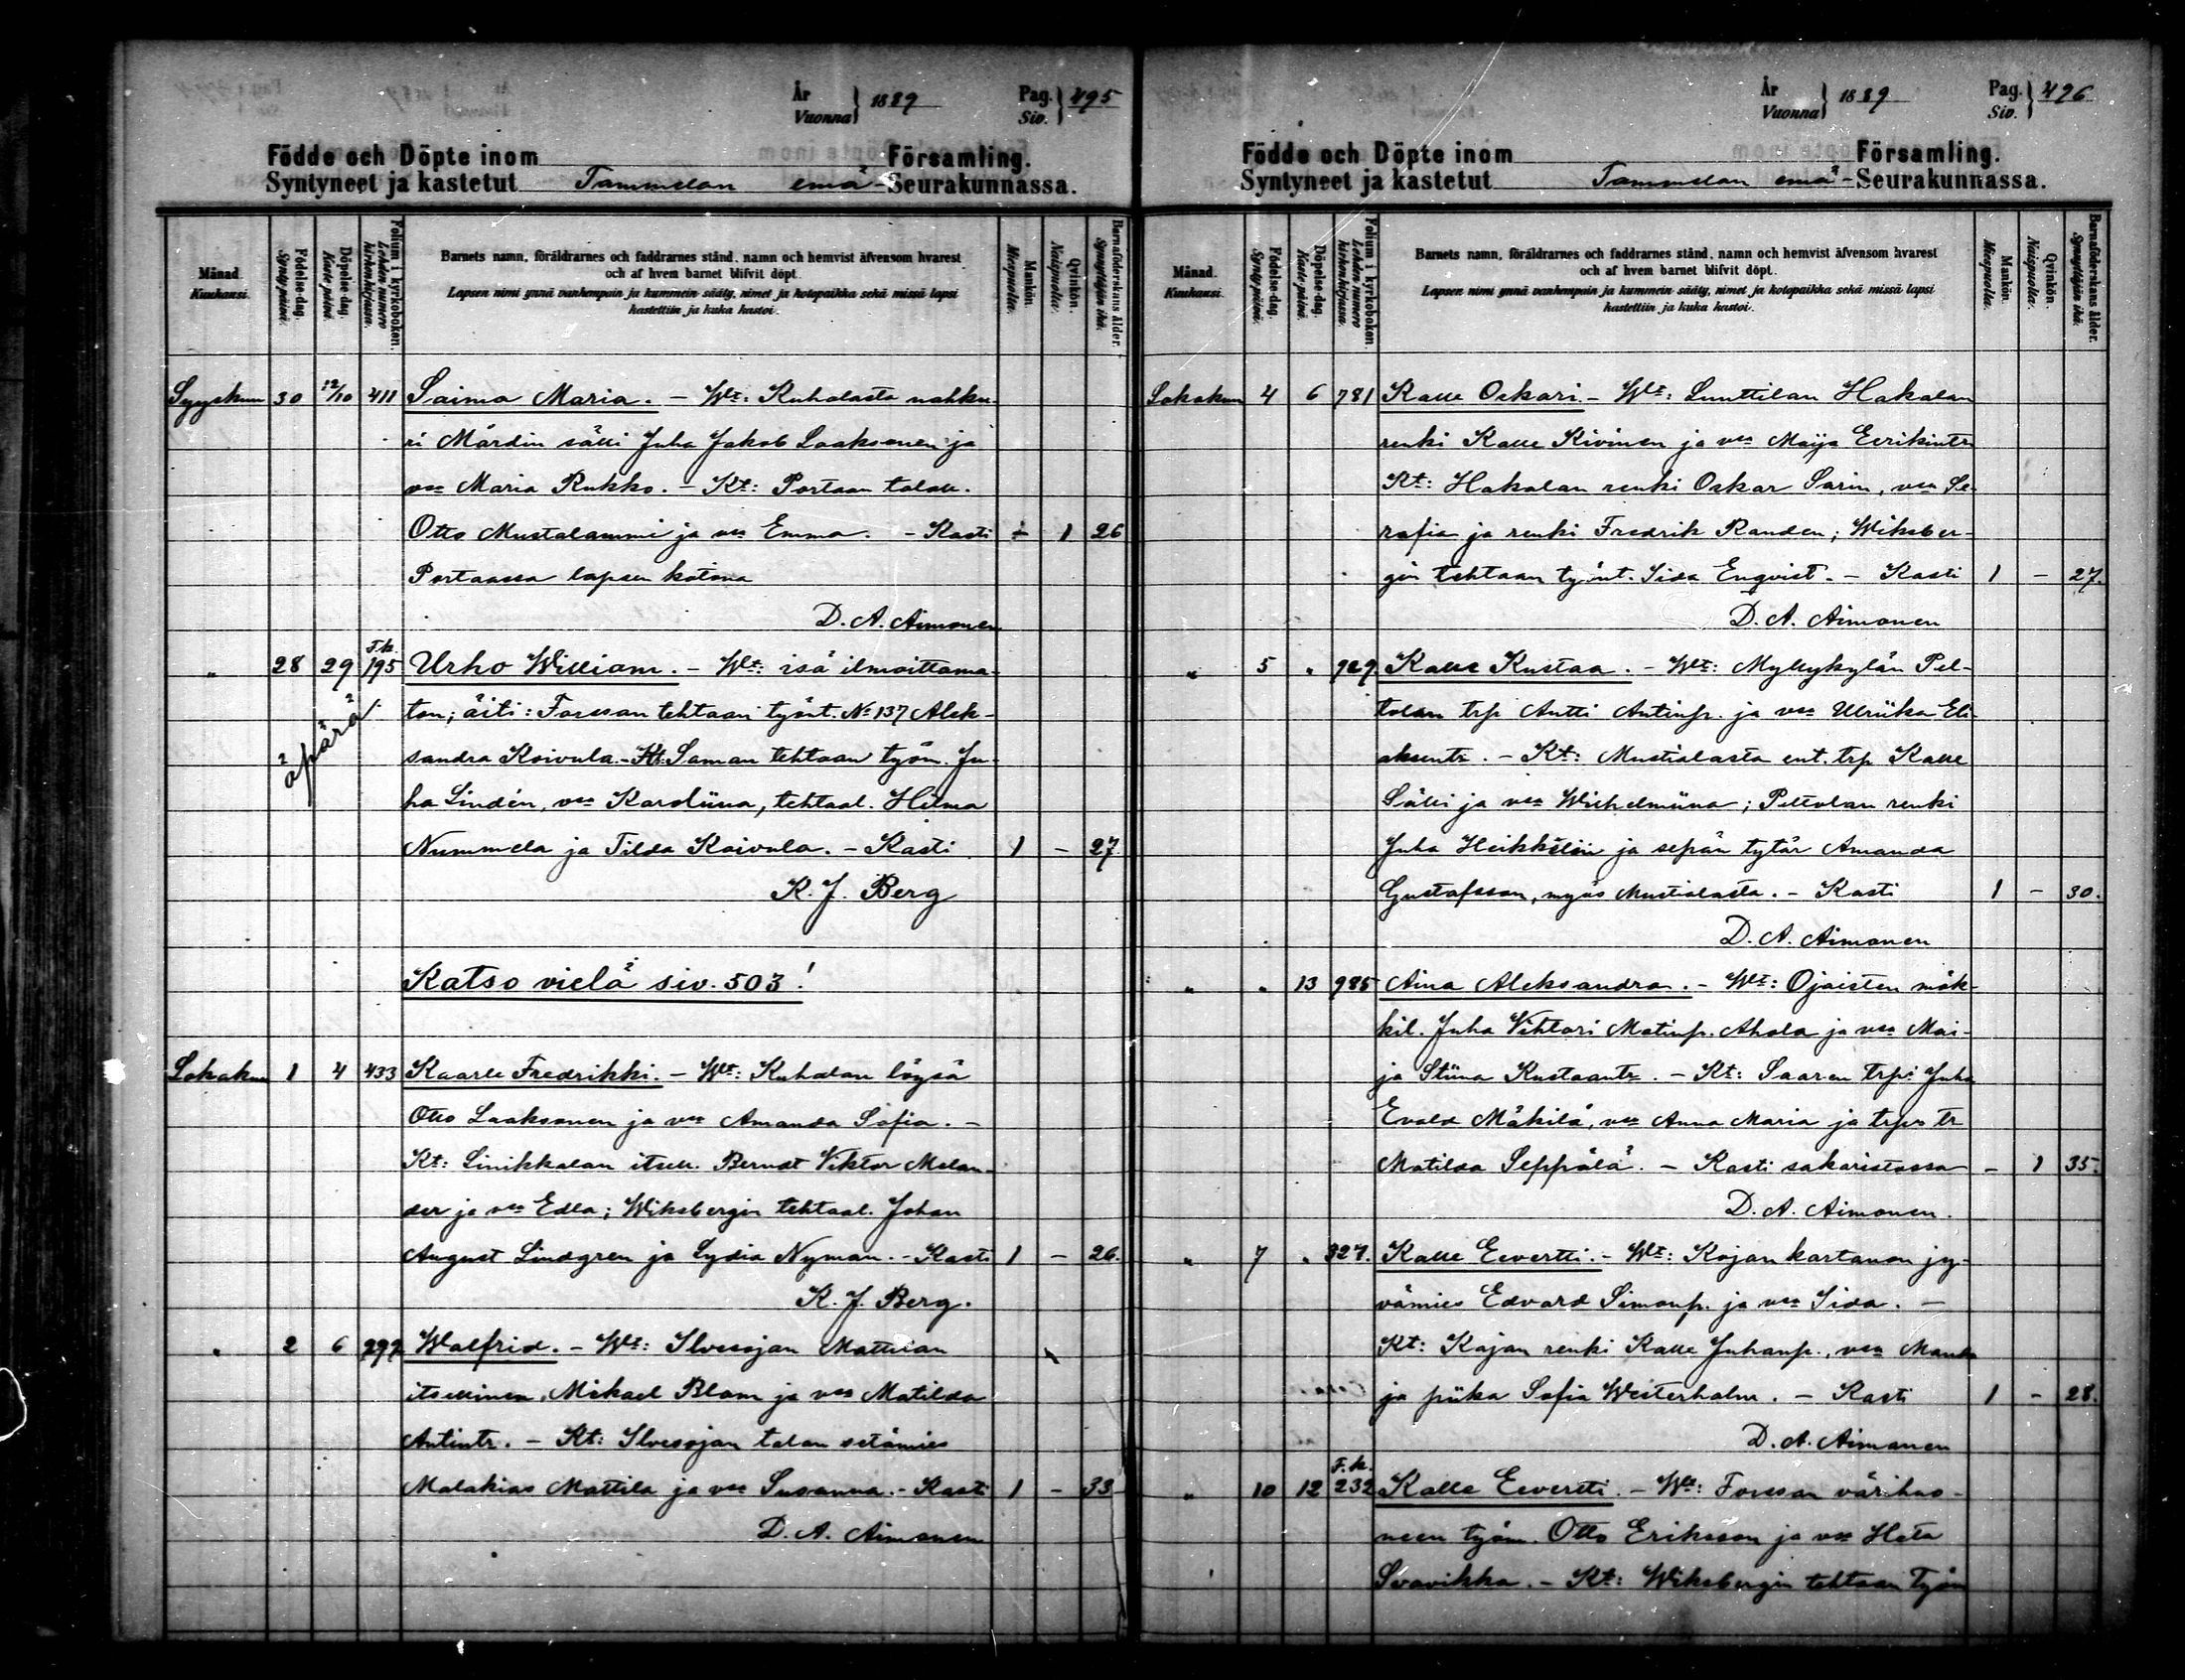 År
Vuonna } 1889
Pag.
Siv. } 495
Födde och Döpte inom Församling.
Syntyneet ja kastetut Tammelan emä-Seurakunnassa.
Månad. Kuukausi.
Födelse-dag. Synty-päivä.
Döpelse-dag. Kaste-päivä.
Folium i kyrkoboken. Lehden numero kirkonkirjassa.
Barnets namn, föräldrarnes och faddrarnes stånd, namn och hemvist äfvensom hvarest
och af hvem barnet blifvit döpt.
Lapsen nimi ynnä vanhempain ja kummein sääty, nimet ja kotopaikka sekä missä lapsi
kastettiin ja kuka kastoi.
Mankön. Miespuolta.
Qvinkön. Naispuolta.
Barnaföderskans ålder. Synnyttäjän ikä.
Syyskuu 30 12/10 411 Saima Maria. - Wt: Kuhalasta nahku-
ri Mårdin sälli Juha Jakob Laaksonen ja
vo Maria Rukko. - Kt: Portaan talall.
Otto Mustalammi ja vo Emma. - Kasti - 1 26
Portaassa lapsen kotona
D. A. Aimonen
" 28 29 F.k. 195 Urho William. - Wt: isä ilmoittama-
äpärä.
ton; äiti: Forssan tehtaan työnt. No 137 Alek-
sandra Koivula. - Kt: Saman tehtaan työm. Ju-
ha Lindén, vo Karoliina, tehtaal. Hilma
Nummela ja Tilda Koivula. - Kasti 1 - 27
K. J. Berg
Katso vielä siv. 503!
Lokakuu 1 4 433 Kaarle Fredrikki. - Wt: Kuhalan löysä
Otto Laaksonen ja vo Amanda Sofia. -
Kt: Linikkalan itsell. Berndt Viktor Melan-
der ja vo Edla; Wiksbergin tehtaal. Johan
August Lindgren ja Lydia Nyman. - Kasti 1 - 26.
K. J. Berg.
" 2 6 Walfrid. - Wt: Ilvesojan Mattilan
itsellinen Mikael Blom ja vo Matilda
Antintr. - Kt: Ilvesojan talan setämies
Malakias Mattila ja vo Susanna. - Kasti 1 - 33
D. A. Aimonen
År
Vuonna } 1889
Pag.
Siv. } 496
Födde och Döpte inom Församling.
Syntyneet ja kastetut Tammelan emä-Seurakunnassa.
Månad. Kuukausi.
Födelse-dag. Synty-päivä.
Döpelse-dag. Kaste-päivä.
Folium i kyrkoboken. Lehden numero kirkonkirjassa.
Barnets namn, föräldrarnes och faddrarnes stånd, namn och hemvist äfvensom hvarest
och af hvem barnet blifvit döpt.
Lapsen nimi ynnä vanhempain ja kummein sääty, nimet ja kotopaikka sekä missä lapsi
kastettiin ja kuka kastoi.
Mankön. Miespuolta.
Qvinkön. Naispuolta.
Barnaföderskans ålder. Synnyttäjän ikä.
Lokakuu 4 6 781 Kalle Oskari. - Wt: Sunttilan Hakalan
renki Kalle Kivinen ja vo Maija Eerikintr.
Kt: Hakalan renki Oskar Sarin, vo Se-
rafia ja renki Fredrik Randen; Wiksber-
gin tehtaan työnt. Iida Enqvist. - Kasti 1 - 27.
D. A. Aimonen
" 5 " 729. Kalle Kustaa. - Wt: Myllykylän Pel-
tolan trp Antti Antinp. ja vo Ulriika Eli-
aksentr. - Kt: Mustialasta ent. trp Kalle
Sälli ja vo Wilhelmiina; Peltolan renki
Juha Heikkilän ja sepän tytär Amanda
Gustafsson, myös Mustialasta. - Kasti 1 - 30.
D. A. Aimonen
" " 13 985 Aina Aleksandra. - Wt: Ojaisten mök-
kil. Juha Vihtori Matinp. Ahola ja vo Mai-
ja Stiina Kustaantr. - Kt: Saaren trp: Juha
Evald Mäkilä, vo Anna Maria ja trp:n tr
Matilda Seppälä. - Kasti sakaristossa - 1 35.
D. A. Aimonen.
" 7 " 327. Kalle Eevertti. - Wt: Kojan kartanon jy-
vämies Edvard Simonp. ja vo Iida. -
Kt: Kojan renki Kalle Juhanp., vo Manda
ja piika Sofia Westerholm. - Kasti 1 - 28.
D. A. Aimonen
" 10 12 F.k. 232 Kalle Eevertti. - Wt: Forssan värihuo-
neen työm. Otto Eriksson ja vo Heta
Svavikka. - Kt: Wiksbergin tehtaan työn